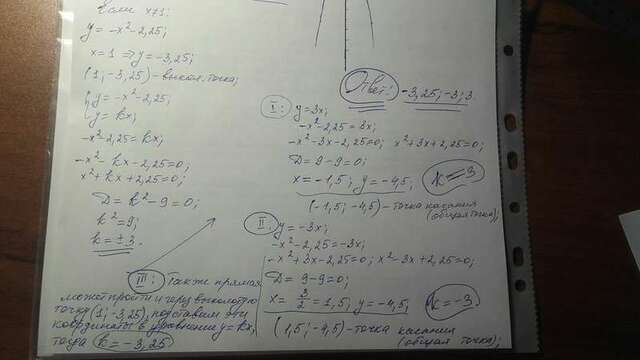 Если x≠1:
y = -x² - 2,25;
x = 1 ⇒ y = -3,25;
(1; -3,25) - выкол. точка;
{ y = -x² - 2,25;
y = kx;
-x² - 2,25 = kx;
-x² - kx - 2,25 = 0;
x² + kx + 2,25 = 0;
D = k² - 9 = 0;
k² = 9;
k = ± 3.
III: Также прямая
может пройти и через выколотую
точку (1; -3,25), подставим эти
координаты в уравнение y = kx,
тогда k = -3,25
Ответ: -3,25; -3; 3.
I: y = 3x;
-x² - 2,25 = 3x;
-x² - 3x - 2,25 = 0; x² + 3x + 2,25 = 0;
D = 9 - 9 = 0;
x = -1,5; y = -4,5; k = 3
(-1,5; -4,5) - точка касания
(общая точка);
II: y = -3x;
-x² - 2,25 = -3x;
-x² + 3x - 2,25 = 0; x² - 3x + 2,25 = 0;
D = 9 - 9 = 0;
x = 3/2 = 1,5; y = -4,5; k = -3
(1,5; -4,5) - точка касания
(общая точка);